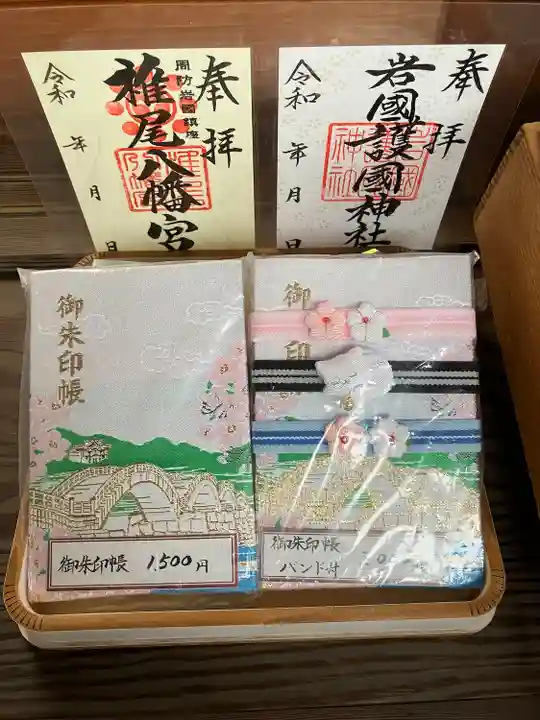 奉拝
周防岩國鎮座
椎尾八幡宮
令和 年 月 日
奉拝
岩國護國神社
令和 年 月 日
御朱印帳
御朱印
御朱印帳 1,500円
御朱印帳
バンド付